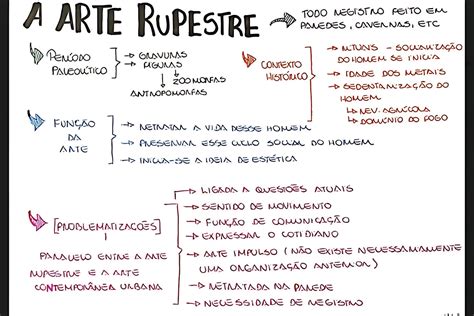 A ARTE RUPESTRE → TODO REGISTRO FEITO EM
PAREDES, CAVERNAS, ETC
PERÍODO
PALEOLÍTICO
→ GRAVURAS
→ FIGURAS
→ ZOOMORFAS
ANTROPOMORFAS
CONTEXTO
HISTÓRICO
→ RITUAIS - SOCIALIZAÇÃO
DO HOMEM SE INICIA
→ IDADE DOS METAIS
→ SEDENTARIZAÇÃO DO
HOMEM
↳ REV. AGRÍCOLA
↳ DOMÍNIO DO FOGO
FUNÇÃO
DA
ARTE
→ RETRATAR A VIDA DESSE HOMEM
→ PRESERVAR ESSE CICLO SOCIAL DO HOMEM
→ INICIA-SE A IDEIA DE ESTÉTICA
[PROBLEMATIZAÇÕES]
PARALELO ENTRE A ARTE
RUPESTRE E A ARTE
CONTEMPORÂNEA URBANA
→ LIGADA A QUESTÕES ATUAIS
→ SENTIDO DE MOVIMENTO
→ FUNÇÃO DE COMUNICAÇÃO
→ EXPRESSAR O COTIDIANO
→ ARTE IMPULSO (NÃO EXISTE NECESSARIAMENTE
UMA ORGANIZAÇÃO ANTERIOR)
→ RETRATADA NA PAREDE
→ NECESSIDADE DE REGISTRO